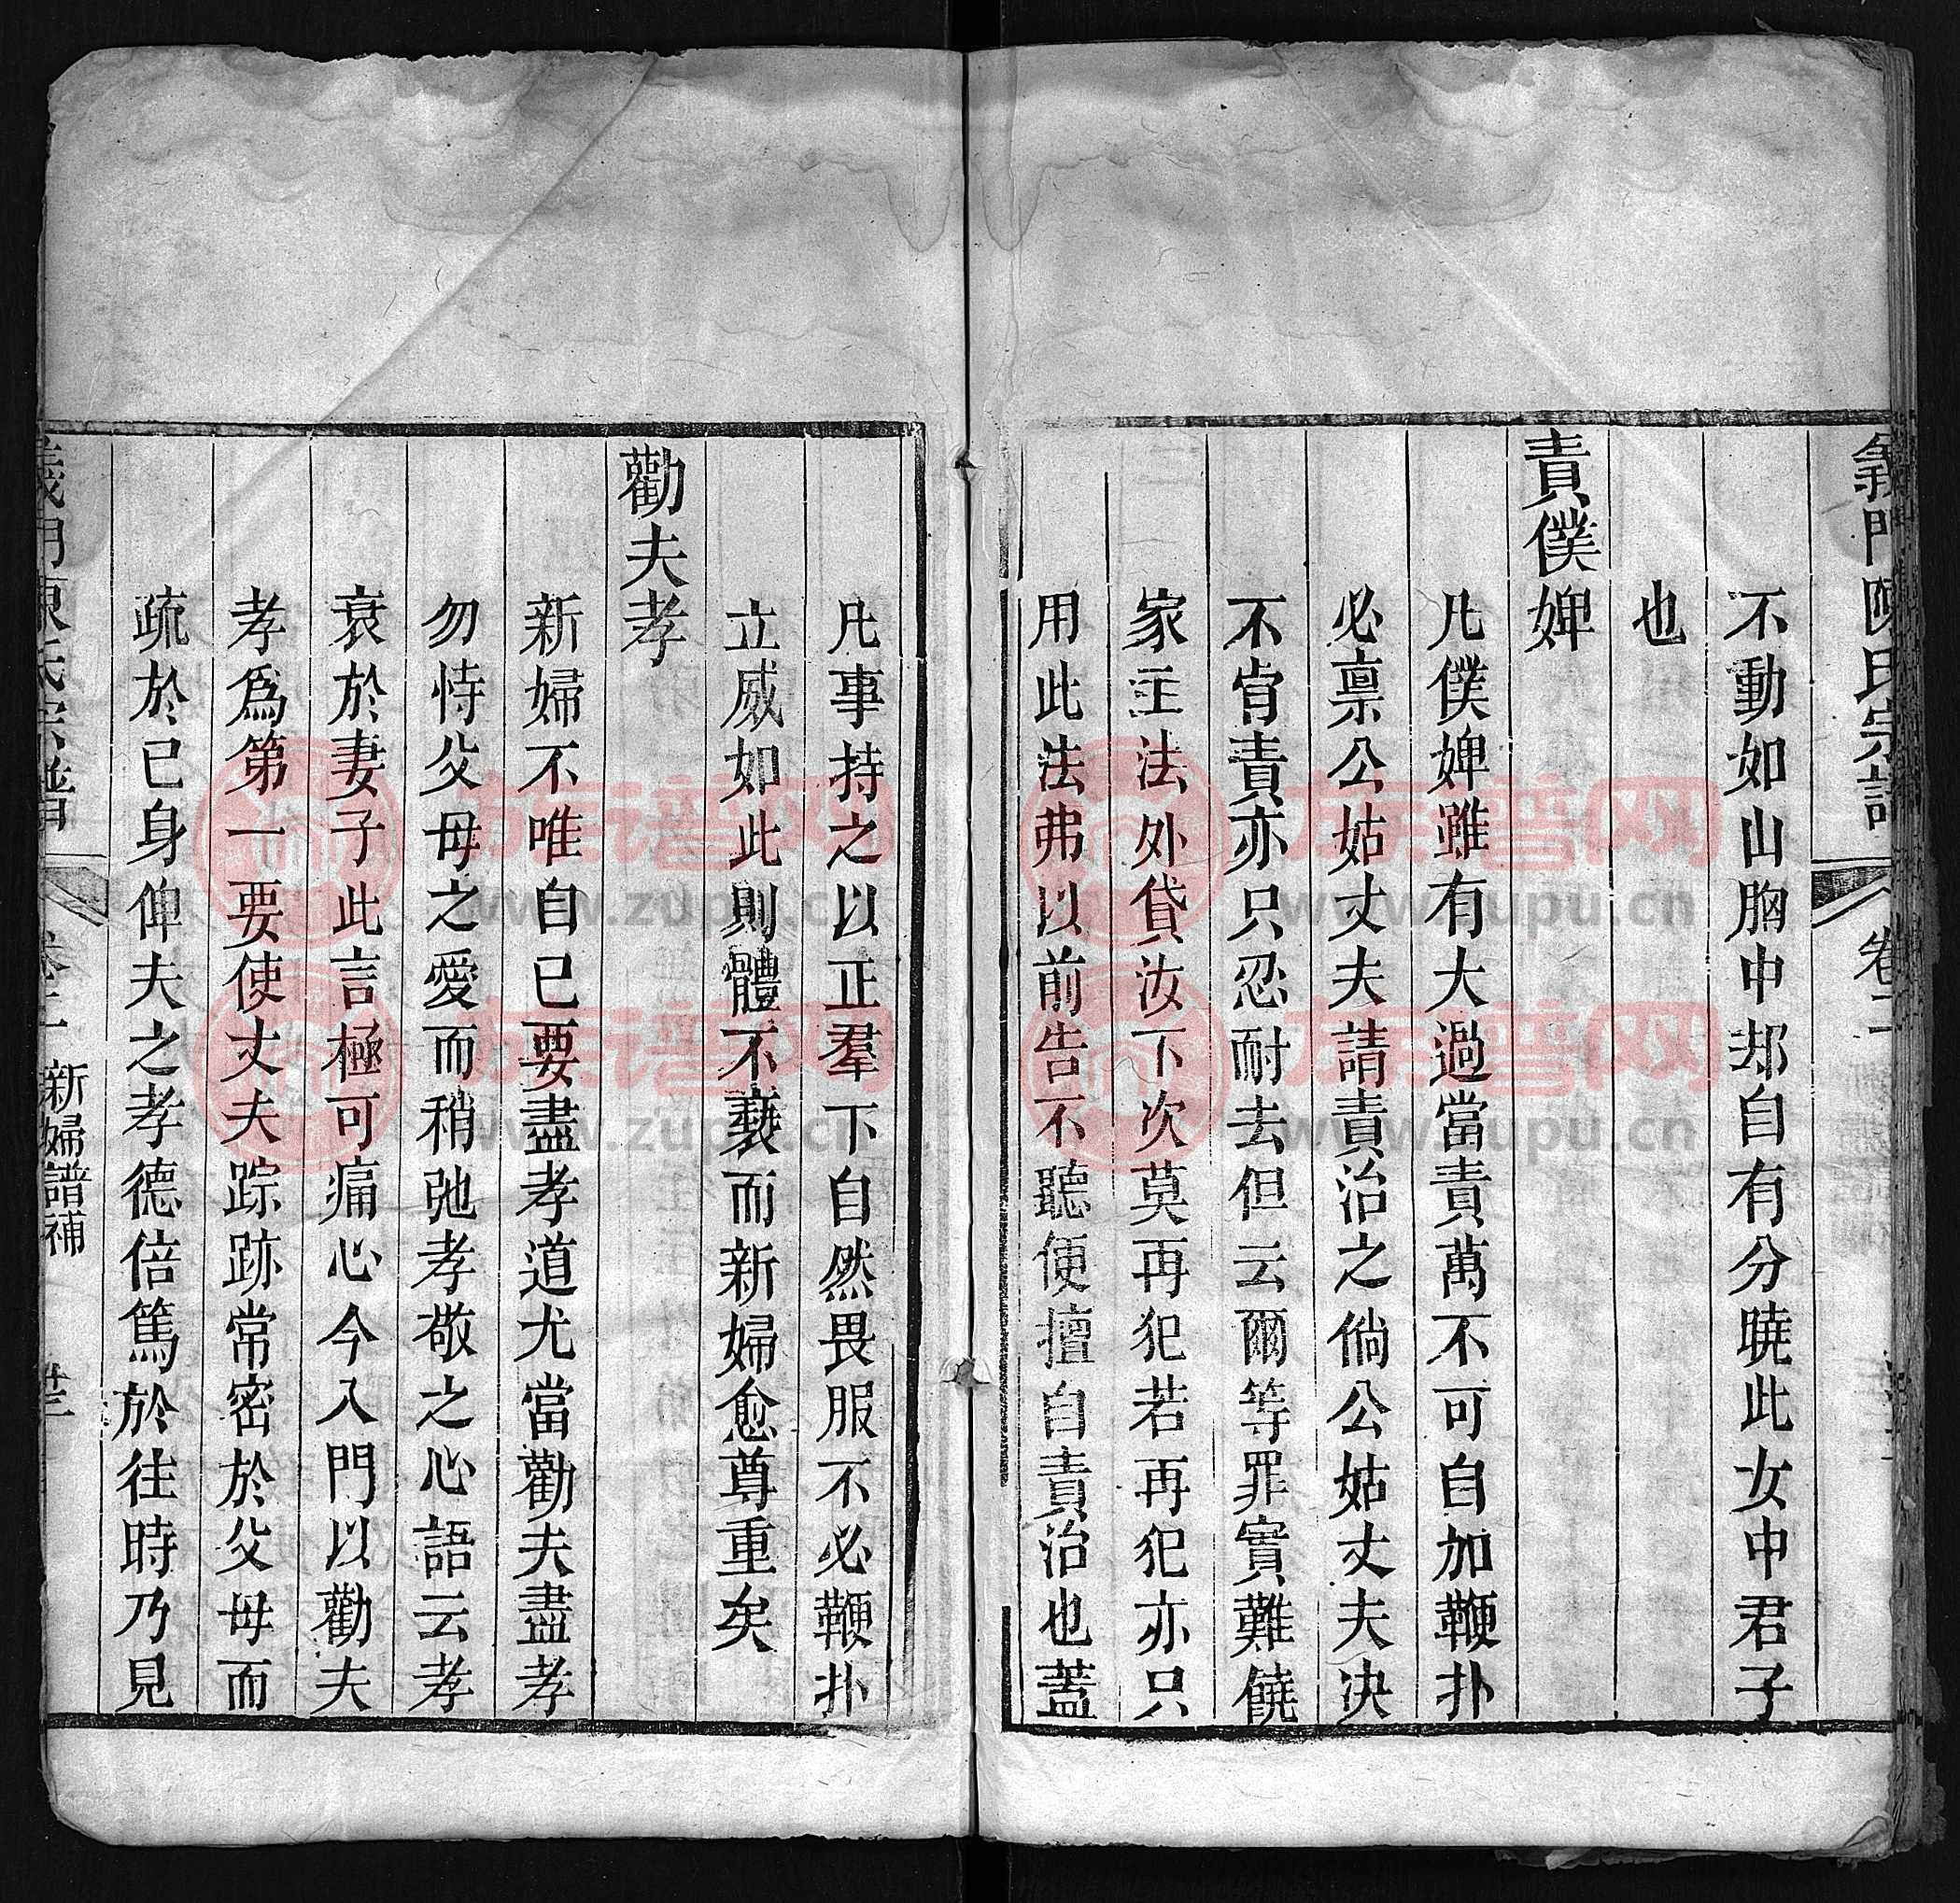 義門陳氏宗譜
卷二
不動如山胸中却自有分曉此女中君子
也
責僕婢
凡僕婢雖有大過當責萬不可自加鞭扑
必禀公姑丈夫請責治之倘公姑丈夫决
不肯責亦只忍耐去但云爾等罪實難饒
家主法外貸汝下次莫再犯若再犯亦只
用此法弗以前告不聽便擅自責治也蓋
凡事持之以正羣下自然畏服不必鞭扑
立威如此則體不䙝而新婦愈尊重矣
勸夫孝
新婦不唯自已要盡孝道尤當勸夫盡孝
勿恃父母之愛而稍弛孝敬之心語云孝
衰於妻子此言極可痛心今入門以勸夫
孝爲第一要使丈夫踪跡常密於父母而
疏於已身俾夫之孝德倍篤於往時乃見
義門陳氏宗譜
卷二
新婦譜補
族譜网
www.zupu.cn